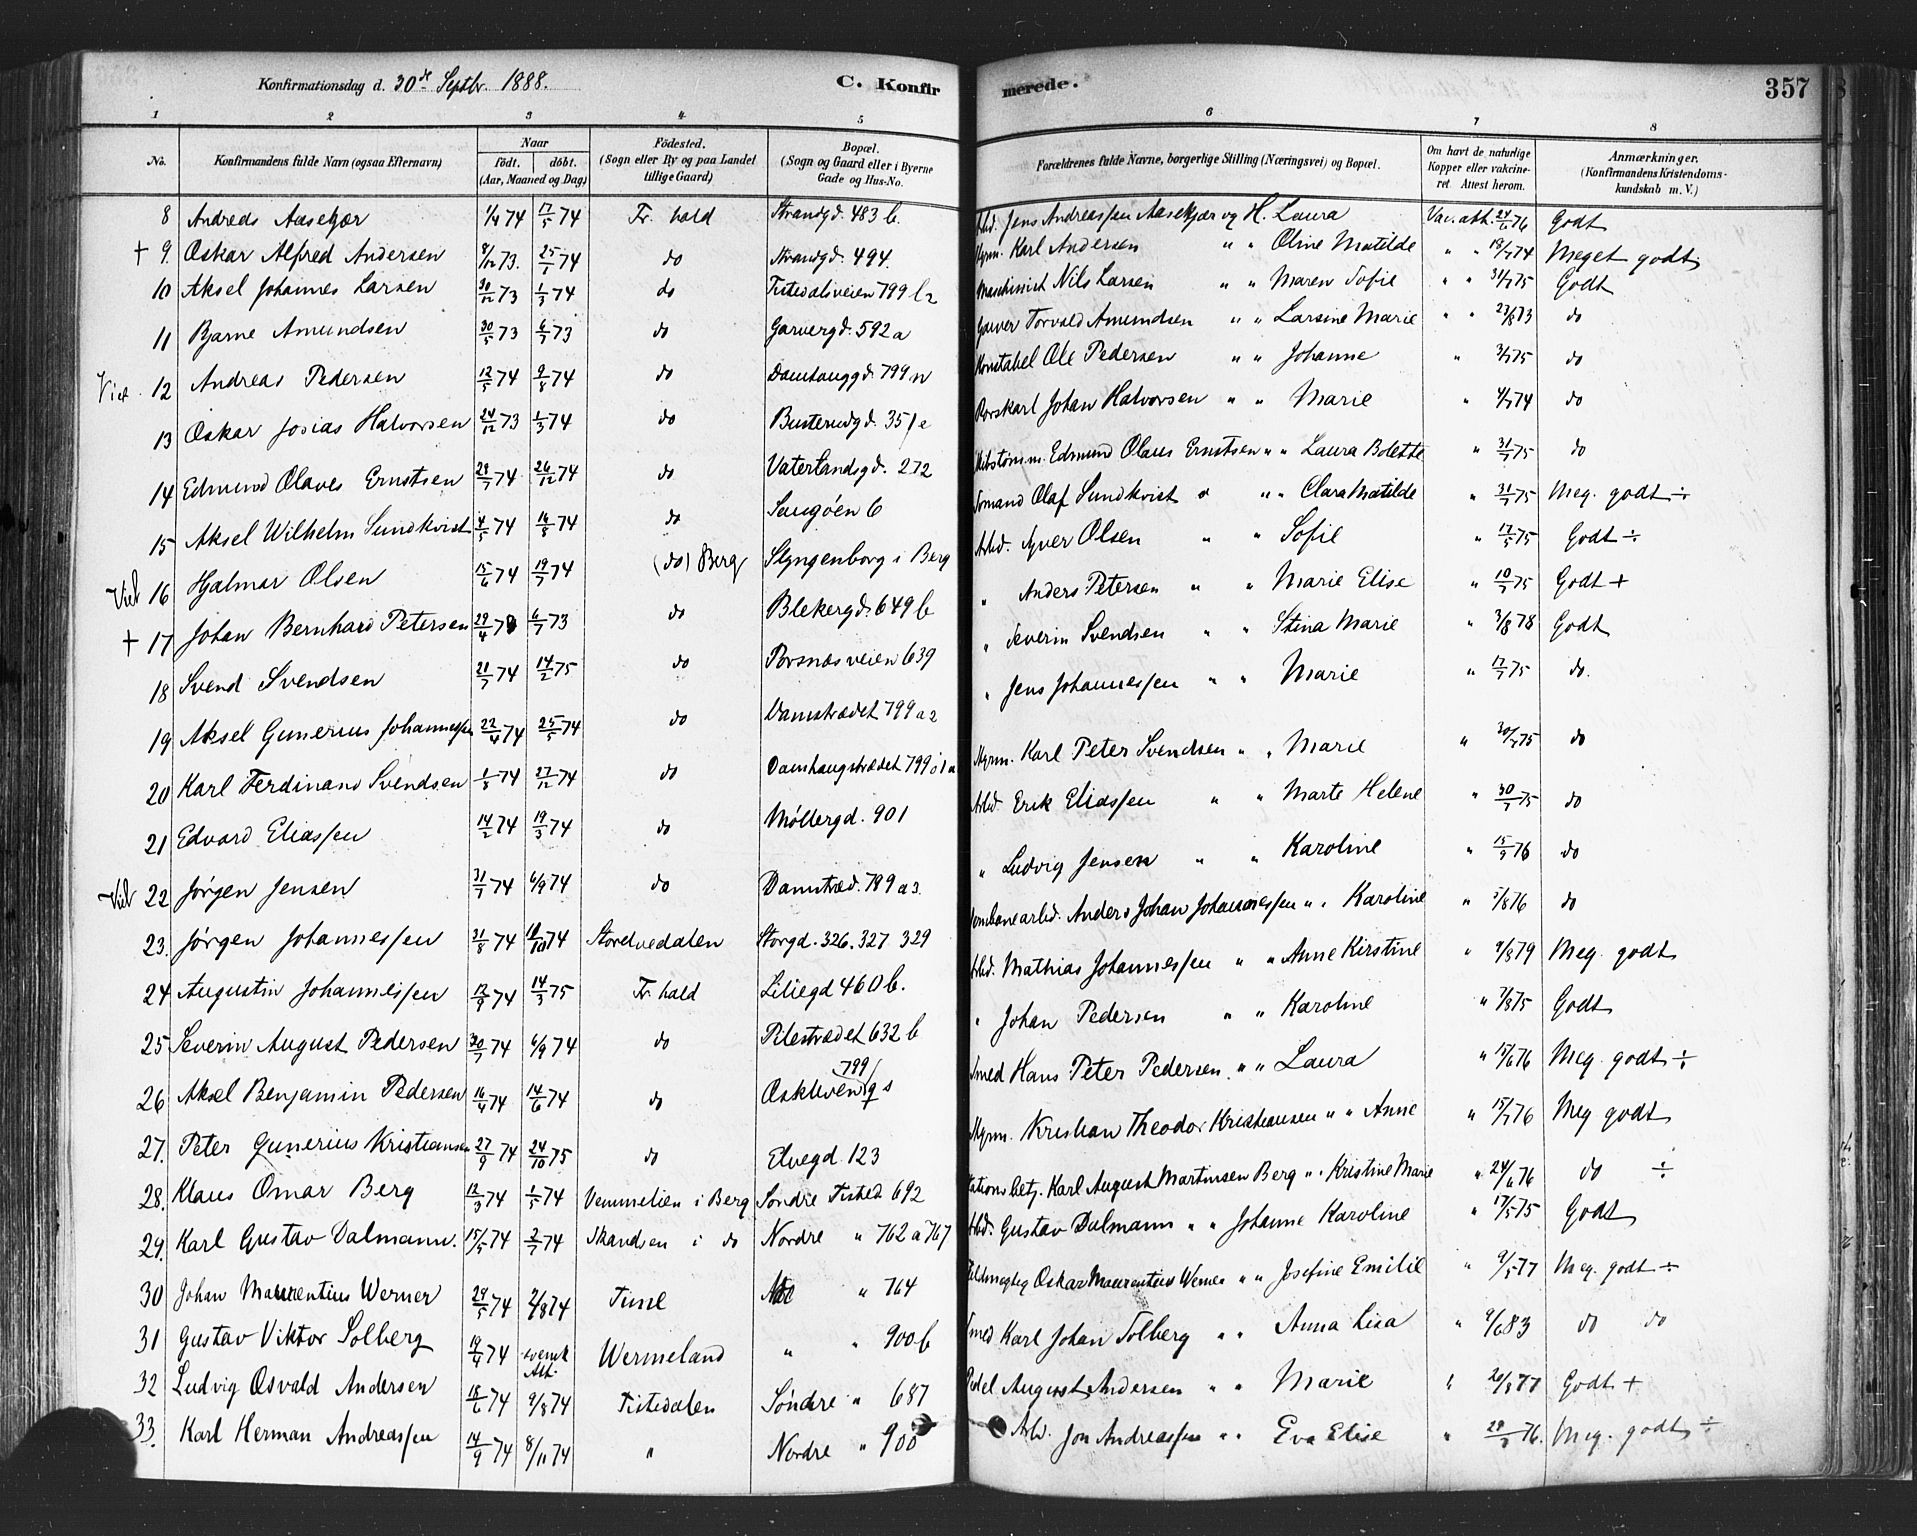 Konfirmationsdag d. 30de Septbr. 1888. C. Konfirmerede. 357
1 2 3 4 5 6 7 8
No. Konfirmandens fulde Navn (ogsaa Efternavn) Naar födt. döbt. (Aar, Maaned og Dag) Födested. (Sogn eller By og paa Landet tillige Gaard) Bopæl. (Sogn og Gaard eller i Byerne Gade og Hus-No. Forældrenes fulde Navne, borgerlige Stilling (Næringsvei) og Bopæl. Om havt de naturlige Kopper eller vakcineret. Attest herom. Anmærkninger. (Konfirmandens Kristendomskundskab m. V.)
8 Andreas Aasekjær 1/4 74 17/5 74 Fr. hald Strandgd. 483 b. Arbd. Jens Andreassen Aasekjær og H. Laura Vac. att. 24/6 76 Godt
+ 9. Oskar Alfred Andersen 8/12 73. 25/1 74 do Strandgd. 494. Karl Andersen " " Oline Matilde " " 18/7 74 Meget godt
10 Aksel Johannes Larsen 30/12 73 1/3 74 do Tistedalsveien 799 b2 Maschinist Nils Larsen " " Maren Sofie " " 31/7 75 Godt
11 Bjarne Amundsen 30/5 73 6/7 73 do Garvergd. 592 a Garver Torvald Amundsen " " Larsine Marie " " 27/8 73 do
12 Andreas Pedersen 12/5 74 9/8 74 do Damhauggd. 799 n Konstabel Ole Pedersen " " Johanne " 3/7 75 do
13 Oskar Josias Halvorsen 24/12 73 1/3 74 do Busterudgd. 351 e Johan Halvorsen " " Marie " 4/7 74 do
14 Edmund Olaves Ernstsen 29/7 74 26/12 74 do Vaterlandsgd. 272 Edmund Olaus Ernstsen " " Laura Bolette " 31/7 75 do
15 Aksel Wilhelm Sundkvist 4/5 74 16/8 74 do Saugöen 6 Olaf Sundkvist " " Clara Matilde " 31/7 75 Meg. godt ÷
16 Hjalmar Olsen 15/6 74 19/7 74 (do) Berg Slyngenborg i Berg Arbd. Olsen " " Sofie " 17/5 75 Godt ÷
+ 17 Johan Bernhard Petersen 29/4 73 6/7 73 do Blekergd. 649 b " Anders Petersen " " Marie Elise " 10/7 75 Godt +
18 Svend Svendsen 21/7 74 14/2 75 do Porsnæsveien 639 " Severin Svendsen " " Stina Marie " 3/8 78 Godt
19 Aksel Gunerius Johannessen 22/4 74 25/5 74 do Damstrædet 799 a2 " Jens Johannessen " " Marie " 17/7 75 do.
20 Karl Ferdinand Svendsen 1/8 74 27/12 74 do Damhaugstrædet 799 Karl Peter Svendsen " " Marie " 30/7 75 do
21 Edvard Eliassen 14/2 74 19/3 74 do Møllergd. 901 Arbd. Erik Eliassen " " Marte Helene " 30/7 75 do
22 Jørgen Jensen 31/7 74 6/9 74 do Damstræd. 799 a3. " Ludvig Jensen " " Karoline " 15/9 76 do
23. Jørgen Johannessen 31/8 74 18/10 74 Storelvedalen Storgd. 326. 327 329 Jernbanearbd. Anders Johan Johannessen " " Karoline " 5/8 76 do
24 Augustin Johannessen 12/9 74 14/3 75 Fr. hald Liliegd 460 b. Arbd. Mathias Johannessen " " Anne Kirstine " 9/8 79 Meg. godt
25 Severin August Pedersen 30/7 74 6/9 74 do Pilestrædet 632 b " Johan Pedersen " " Karoline " 7/8 75 Godt
26 Aksel Benjamin Pedersen 16/4 74 14/6 74 do Oskleven 799 q s Smed Hans Peter Pedersen " " Laura " 15/6 76 Meg. godt ÷
27. Peter Gunerius Kristiansen 27/9 74 24/10 75 do Elvegd. 123 Kristian Theodor Kristiansen " " Anne " 15/7 76 Meg godt
28. Klaus Omar Berg 12/3 74 1/5 74 Vemmelien i Berg Søndre Tisted 692 Stationsbetj. Karl August Martinsen Berg " " Kristine Marie " 24/6 76 do ÷
29. Karl Gustav Dalmann. 15/5 74 2/7 74 Skandsen i do Nordre " 762 a 767 Arbd. Gustav Dalmann " " Johanne Karoline " 17/5 75 Godt
30 Johan Maurentius Werner 29/5 74 2/8 74 Tune " 764 Oskar Maurentius Werner " " Josefine Emilie " 9/5 77 Meg. godt ÷
31 Gustav Viktor Solberg 19/4 74 svensk Att. Wermeland " " 900 b Smed Karl Johan Solberg " " Anna Lisa " 9/6 83 do do
32 Ludvig Osvald Andersen 18/6 74 9/8 74 Tistedalen Søndre " 687 August Andersen " " Marie " 20/8 77 Godt +
33. Karl Herman Andreassen 14/9 74 8/11 74 " Nordre " 900 Arbd. Jon Andreassen " " Eva Elise " 29/7 76. Meg. godt ÷